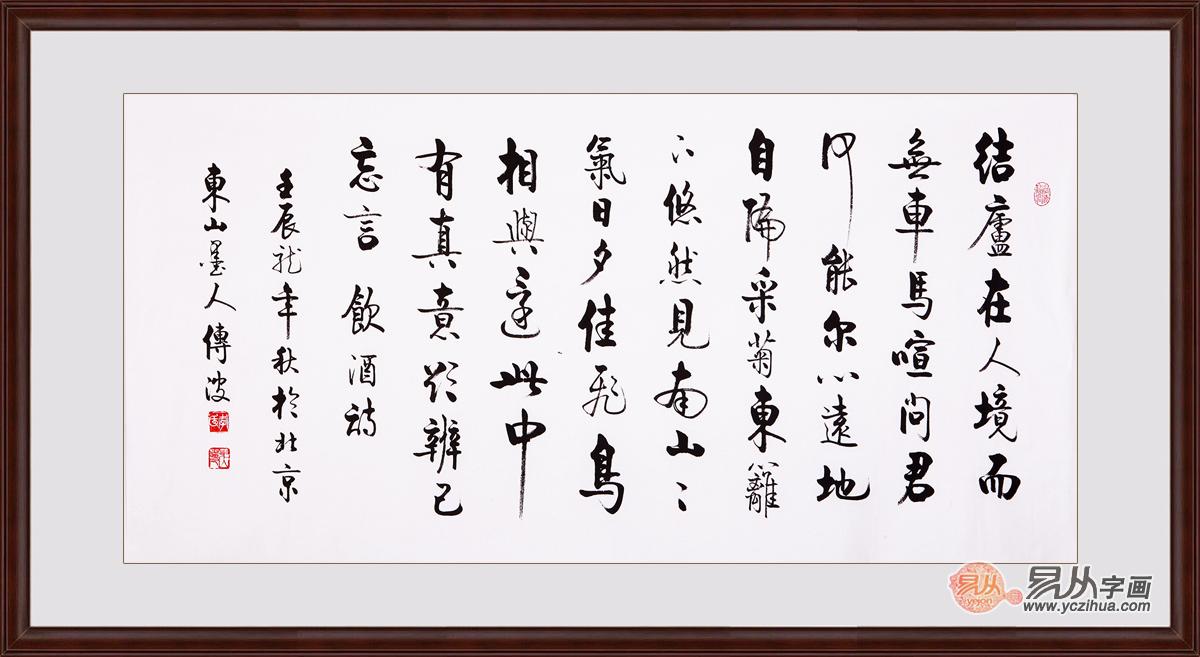 结廬在人境而
無車馬喧问君
何能尔心遠地
自偏采菊東籬
下悠然見南山〻
氣日夕佳飛鳥
相與還此中
有真意欲辨已
忘言 飲酒詩
壬辰龙年秋於北京
東山墨人傳波
易从
易从字画
www.yczihua.com